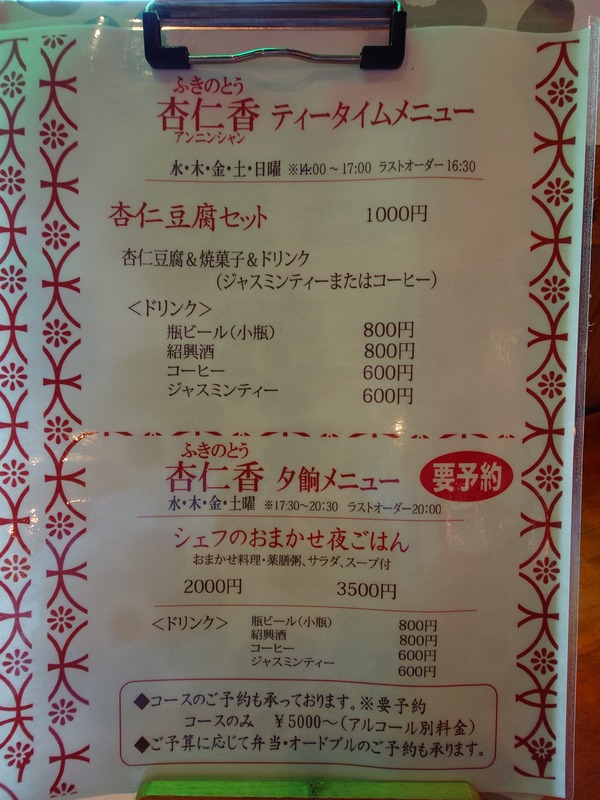 ふきのとう
杏仁香 ティータイムメニュー
アンニンシャン
水・木・金・土・日曜 ※14:00～17:00 ラストオーダー16:30
杏仁豆腐セット 1000円
杏仁豆腐＆焼菓子＆ドリンク
（ジャスミンティーまたはコーヒー）
＜ドリンク＞
瓶ビール（小瓶） 800円
紹興酒 800円
コーヒー 600円
ジャスミンティー 600円
ふきのとう
杏仁香 夕餉メニュー 要予約
水・木・金・土曜 ※17:30～20:30 ラストオーダー20:00
シェフのおまかせ夜ごはん
おまかせ料理・薬膳粥、サラダ、スープ付
2000円 3500円
＜ドリンク＞ 瓶ビール（小瓶） 800円
紹興酒 800円
コーヒー 600円
ジャスミンティー 600円
◆コースのご予約も承っております。※要予約
コースのみ ￥5000～（アルコール別料金）
◆ご予算に応じて弁当・オードブルのご予約も承ります。